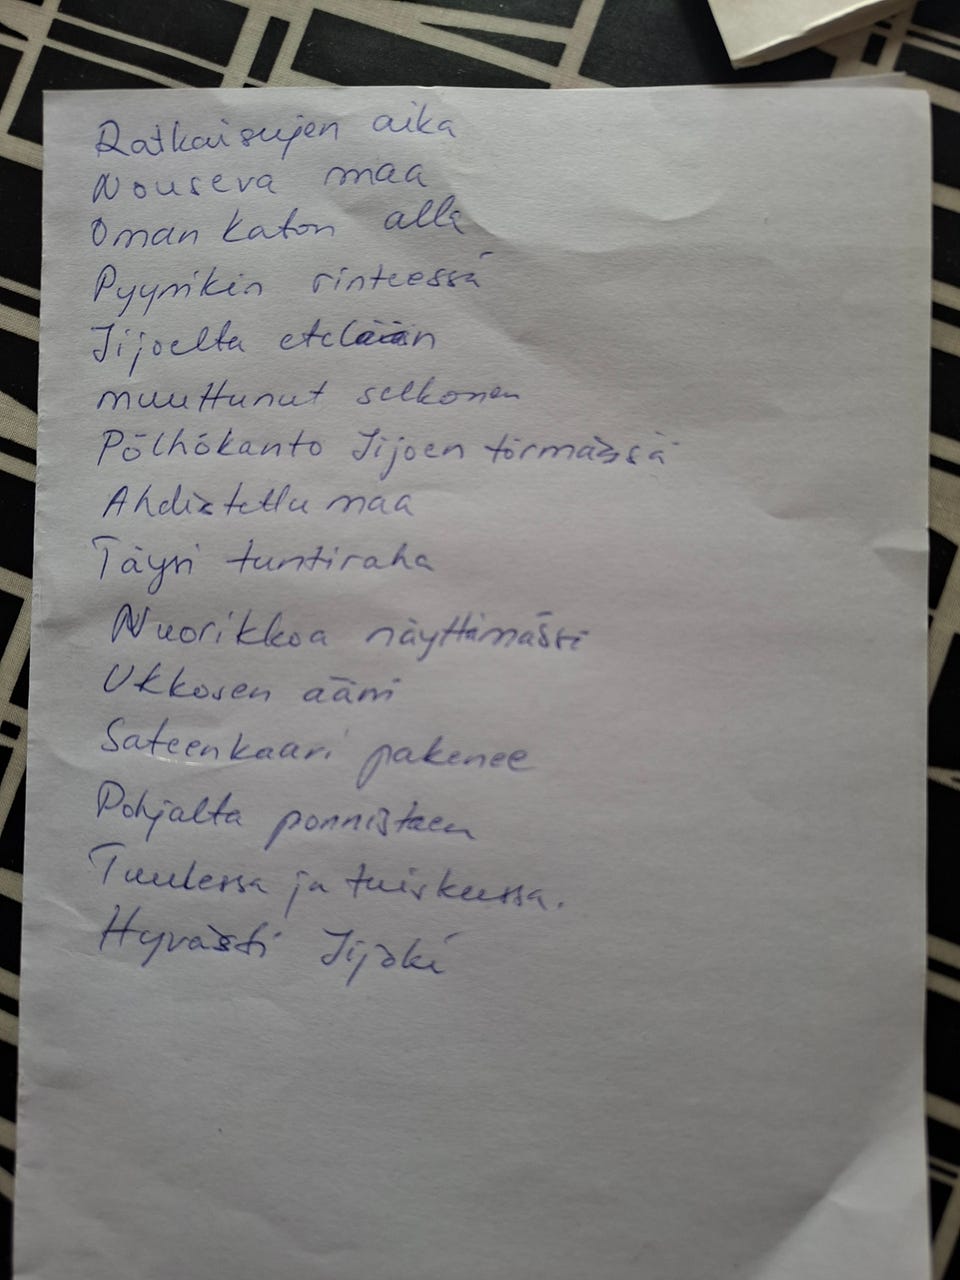 Ratkaisujen aika
Nouseva maa
Oman katon alla
Pyynikin rinteessä
Iijoelta etelään
muuttunut selkonen
Pölhökanto Iijoen törmässä
Ahdistettu maa
Täysi tuntiraha
Nuorikkoa näyttämässi
Ukkosen ääni
Sateenkaari pakenee
Pohjalta ponnistaen
Tuulessa ja tuiskussa.
Hyvästi Iijoki